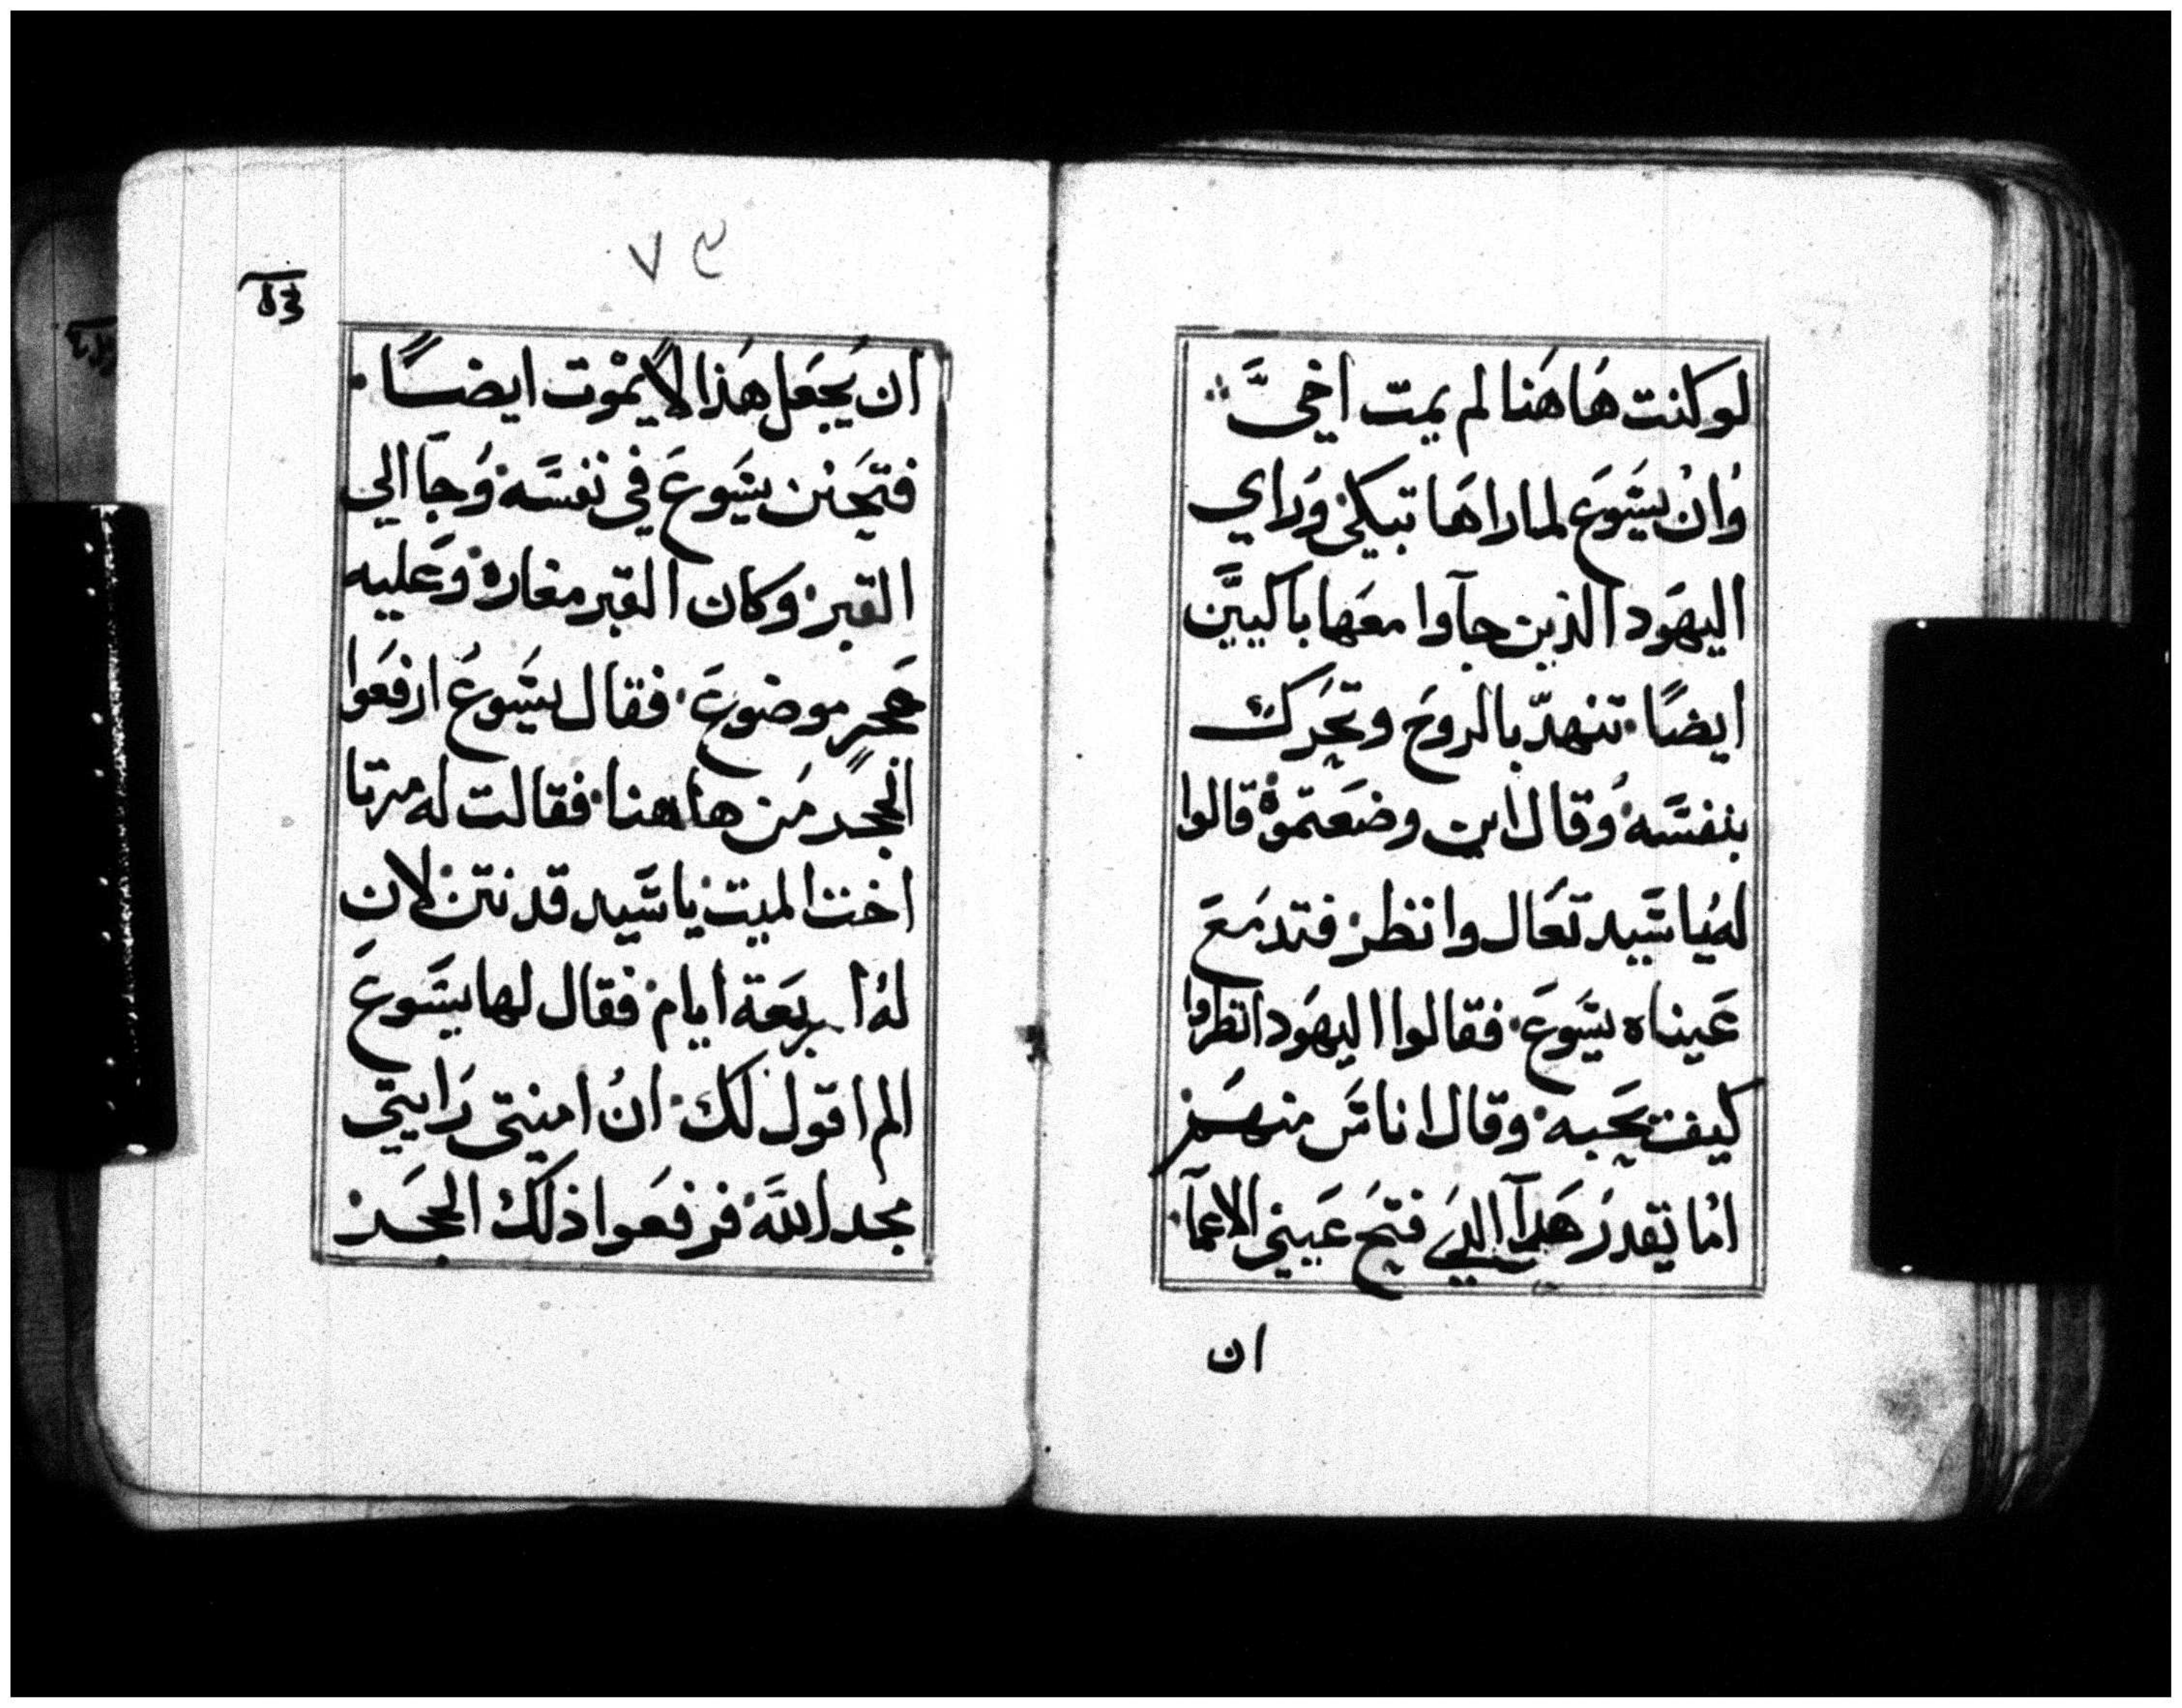 لوكنت هَاهَنا لم يمت اخيَّ
وُانْ يسَوعَ لماراهَا تبكي وَراي
اليهَود الذين جآوا معَها باكييَّن
ايضًا. تنهدّ بالروحَ وتحَرك
بنفسَه وُقال اين وضعَتموهْ قالوا
لهُ ياسَّيد تعَال وانظر فتدمَعَ
عَيناه يسَوعَ. فقالوا اليهَود انظروا
كيف يحَبه وقال اناسَ منهَم
امْا يَقدرَ هَذآ الذي فتحَ عَيني الاعمآ.
ان
٧٩
ان يجَعَل هَذا لا يمْوت ايضًا.
فتحَنن يسَوعَ في نفسَّه وُجآ الي
القبر وكان القبر مغارة وَعَليه
حَجرٍ موضوعَ. فقال يسَوعُ ارفعَوا
الحجر مَن هاهنا. فقالت له مرتا
اخت الميت ياسَّيد قد نتن لان
لهُ اربعَة ايام فقال لها يسَوعَ
الم اقول لك انُ امنتي رَايتي
مجد اللَّه فرفعَوا ذلك الحجَر